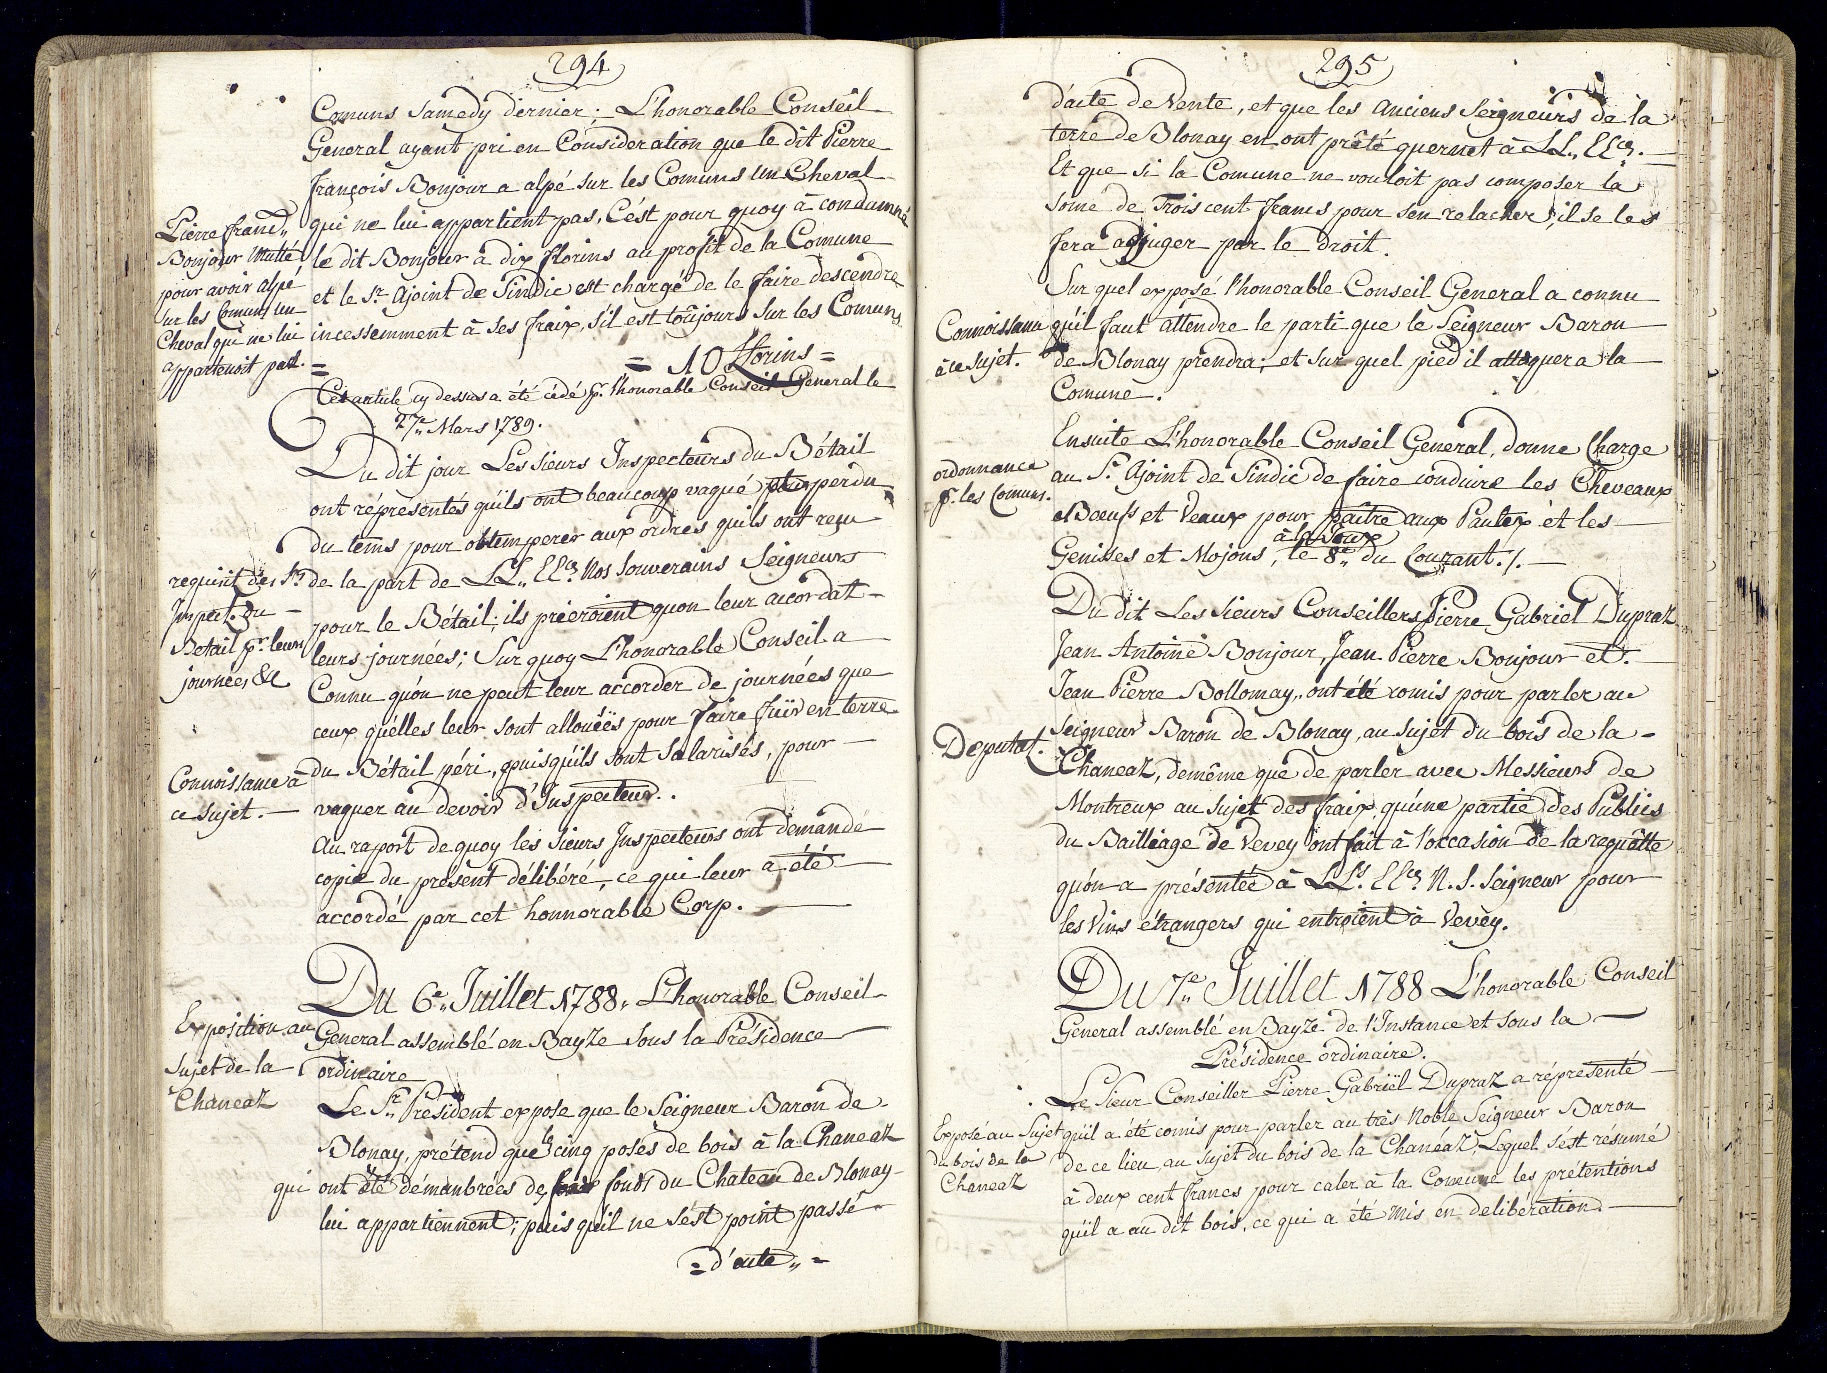 294
Comuns Samedy dernier; L'honorable Conseil
General ayant pri en Consideration que le dit Pierre
françois Bonjour a alpé sur les Comuns un Cheval
qui ne lui appartient pas, C'ést pour quoy à condamné
le dit Bonjour à dix florins au profit de la Comune
et le Sr. Ajoint de Sindic est chargé de le faire descendre
incessemment à ses fraix, s'il est toûjours sur les Comuns
= 10 florins =
Pierre franc.
Bonjour Mutté
pour avoir alpé
sur les Comuns un
Cheval qui ne lui
appartenoit pas. =
Cet article cy dessus a été cédé pr. l'honorable Conseil General le
27e. Mars 1789.
Du dit jour Les Sieurs Inspecteurs du Bétail
ont réprésentés qu'ils ont beaucoup vaqué perdu
du tems pour obtemperer aux ordres qu'ils ont reçu
de la part de LL,, EEces Nos Souverains Seigneurs
pour le Bétail; ils prieroient quon leur accordat
leurs journées; Sur quoy L'honorable Conseil a
Connu qu'on ne peut leur accorder de journées que
ceux qu'élles leur sont allouéës pour faire fuïr en terre
du Bétail péri, puisqu'ils sont Salarisés, pour
vaquer au devoir d'Inspecteur.
Au raport de quoy les Sieurs Inspecteurs ont demandé
copie du présent délibéré, ce qui leur a été
accordé par cet honnorable Corp.
requisit des Srs
Inspect. du
Betail pr. leurs
journées &c
Connoissance à
ce sujet.
Du 6e. Juillet 1788. L'honorable Conseil
General assemblé en Bayze sous la Présidence
ordinaire
Exposition au
sujet de la
Chaneaz
Le Sr. President expose que le Seigneur Baron de
Blonay, prétend que les cinq poses de bois à la Chaneaz
qui ont été démanbrées de fonds du Chateau de Blonay
lui appartiennent; puis qu'il ne s'ést point passé
= d'acte,, =
295
d'acte de Vente, et que les Anciens Seigneurs de la
terre de Blonay en ont prêté quernet à LL,, EEces.
Et que si la Comune ne vouloit pas composer la
some de Trois cent francs pour sen relacher, il se les
fera adjuger par le droit.
Sur quel exposé l'honorable Conseil General a connu
qu'il faut attendre le parti que le Seigneur Baron
de Blonay prendra; et sur quel pied il attaquera la
Comune.
Connoissance
à ce sujet.
Ensuite L'honorable Conseil General, donne Charge
au Sr. Ajoint de Sindic de faire conduire les Cheveaux
Boeufs et Veaux pour paître aux Pautex et les
à la Joux
Genisses et Mojons, le 8e. du Courant ./.
ordonnance
pr. les Comuns.
Du dit Les Sieurs Conseillers Pierre Gabriel Dupraz
Jean Antoine Bonjour, Jean Pierre Bonjour et
Jean Pierre Bollomay,, ont été comis pour parler au
Seigneur Baron de Blonay, au sujet du bois de la
Chaneaz, demême que de parler avec Messieurs de
Montreux au sujet des fraix, qu'une partie des Publics
du Bailliage de Vevey ont fait à l'occasion de la requêtte
qu'on a présentée à LLs. EEces N. S. Seigneur pour
les Vins étrangers qui entroient à Vevey.
Deputat.
Du 7e. Juillet 1788 L'honorable Conseil
General assemblé en Bayze de l'Instance et sous la
Présidence ordinaire.
Le Sieur Conseiller Pierre Gabriël Dupraz a réprésenté
qu'il a été comis pour parler au très Noble Seigneur Baron
de ce lieu, au sujet du bois de la Chanéaz, Lequel s'ést résumé
à deux cent francs pour caler à la Comune les prétentions
qu'il a au dit bois, ce qui a été mis en delibération.
Exposé au Sujet
du bois de la
Chaneaz